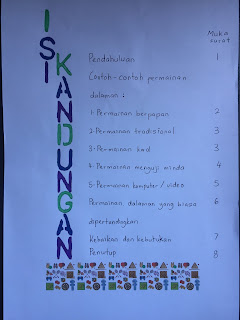 ISI
KANDUNGAN
Muka
surat
Pendahuluan 1
Contoh-contoh permainan
dalaman :
1- Permainan berpapan 2
2- Permainan tradisional 3
3- Permainan kad 3
4- Permainan menguji minda 4
5- Permainan komputer / video 5
Permainan dalaman yang biasa 6
dipertandingkan
Kebaikan dan keburukan 7
Penutup 8